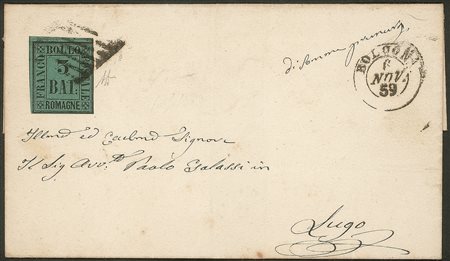 FRANCO BOLLO POSTALE
3
BAI.
ROMAGNE
BOLOGNA
6
NOV.
59
Illmo ed Eccellmo Signore
Il Sig Avv.º Paolo Galassi in
Lugo